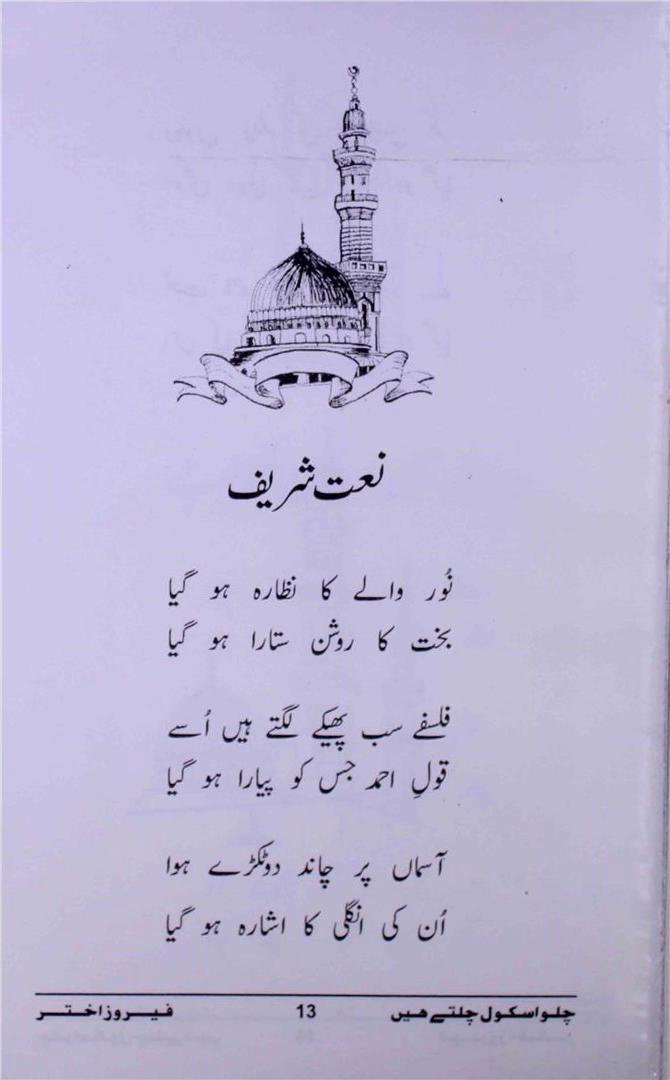 نعت شریف
نُور والے کا نظارہ ہو گیا
بخت کا روشن ستارا ہو گیا
فلسفے سب پھیکے لگتے ہیں اُسے
قولِ احمد جس کو پیارا ہو گیا
آسماں پر چاند دوٹکڑے ہوا
اُن کی انگلی کا اشارہ ہو گیا
چلو اسکول چلتے ھیں 13 فیروز اختر